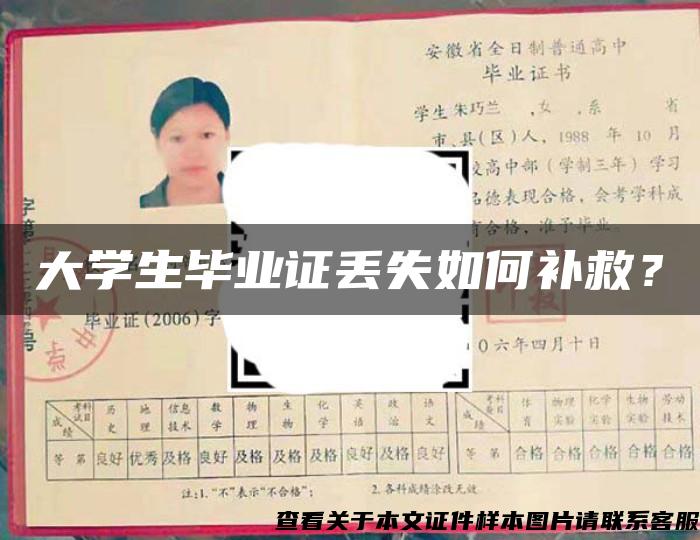 安徽省全日制普通高中
毕业证书
学生朱巧兰 ,女 ,系 省
市、县(区)人, 1988 年 10 月
校高中部(学制三年)学习
品德表现合格, 会考学科成
合格, 准予毕业。
大学生毕业证丢失如何补救?
毕业证(2006)字
〇六年四月十日
成绩 考科试目 历史 地理 信息技术 数学 物理 生物 化学 英语 政治 语文
等第 良好 优秀 及格 良好 及格 及格 及格 良好 良好 良好
成绩 考科查目 体育 物理实验 化学实验 生物实验 劳动技术
等第 合格 合格 合格 合格 合格
注:1. “不”表示“不合格”; 2. 各科成绩涂改无效
查看关于本文证件样本图片请联系客服